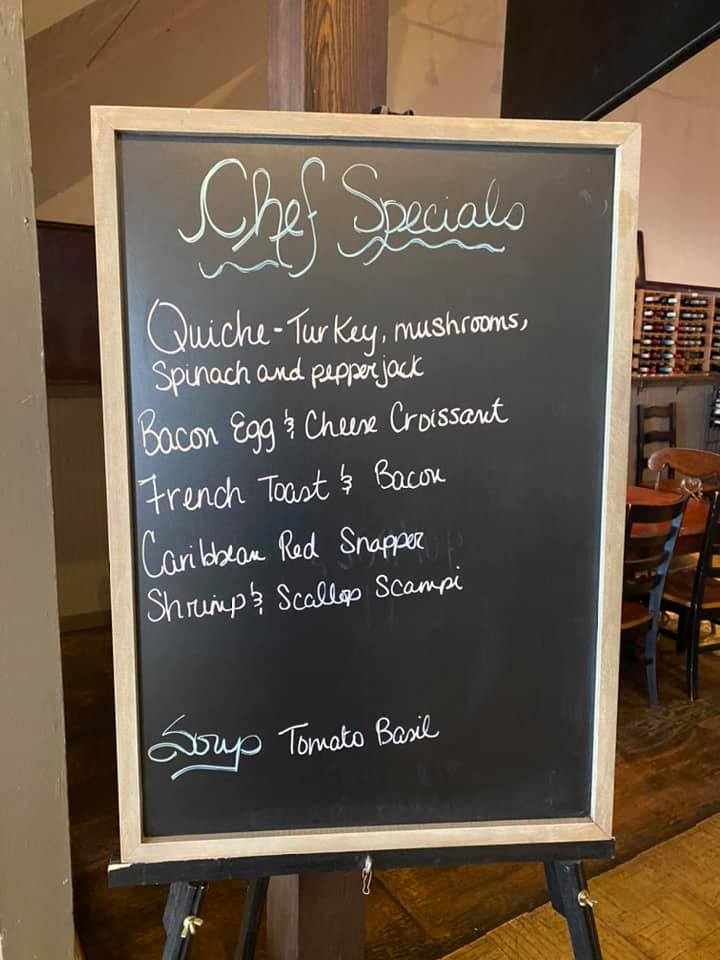 Chef Specials
Quiche - Turkey, mushrooms,
Spinach and pepperjack
Bacon Egg & Cheese Croissant
French Toast & Bacon
Caribbean Red Snapper
Shrimp & Scallop Scampi
Soup Tomato Basil